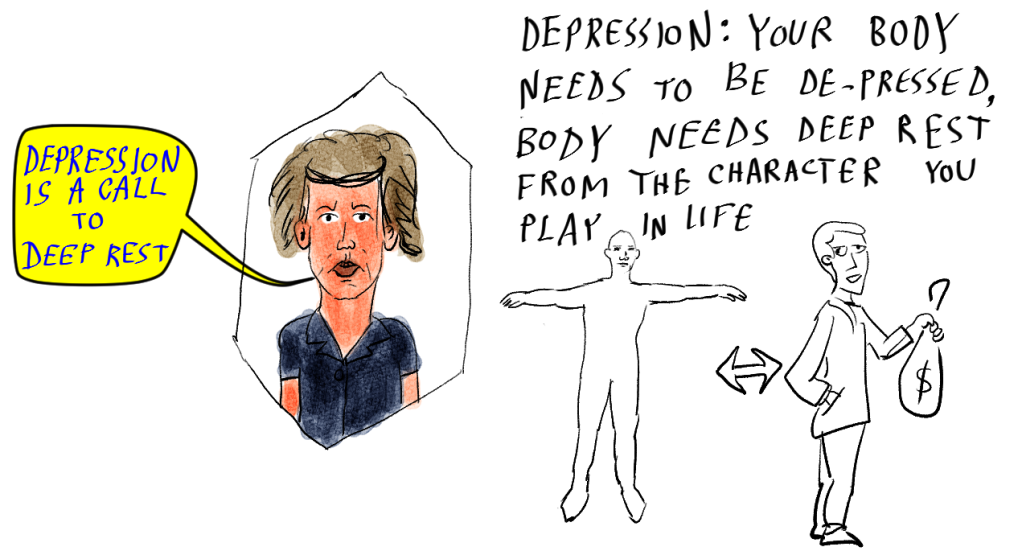 DEPRESSION
IS A CALL
TO
DEEP REST
DEPRESSION: YOUR BODY
NEEDS TO BE DE-PRESSED,
BODY NEEDS DEEP REST
FROM THE CHARACTER YOU
PLAY IN LIFE
$